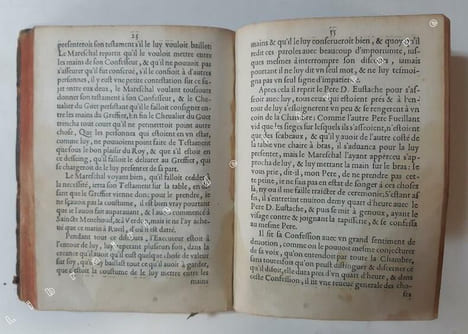 25
presenteroit son testament s'il le luy vouloit bailler:
Le Mareschal repartit qu'il le vouloit mettre entre
les mains de son Confesseur, & qu'il ne pouuoit pas
s'asseurer qu'il fut conserué, s'il le confioit à d'autres
personnes, il y eust vne petite contestation sur ce su-
jet entre eux deux, le Mareschal voulant tousiours
donner son testament à son Confesseur, & le Che-
ualier du Guet persistant qu'il le falloit consigner en-
tre les mains du Greffier, En fin le Cheualier du Guet
trencha tout court qu'il ne permettroit point autre
chose, Que les personnes qui estoient en vn estat,
comme luy, ne pouuoient point faire de Testament
que sous le bon plaisir du Roy, & que s'il estoit en
ce dessein, qu'il falloit le deliurer au Greffier, qui
se chargeroit de le presenter de sa part.
Le Mareschal voyant bien, qu'il falloit ceder à
la necessité, ietta son Testament sur la table, en di-
sant que le Greffier vienne donc pour le prendre, ie
ne sçauois pas la coustume, il est bien vray pourtant
que ie l'auois fait auparauant, & l'auois commencé à
Saincte Menehoud, & à Verdun, mais ie ne l'ay ache-
ué que ce matin à Ruel, d'où il est datté.
Pendant tout ce discours, l'Executeur estoit à
l'entour de luy, luy portant plusieurs fois, dans la
creance qu'il auoit qu'il eust quelque chose de valeur
sur soy, qu'il luy baillast tout ce qu'il auoit à garder,
que c'estoit la coustume de luy mettre entre les
mains
55
mains & qu'il le luy conserueroit bien, & quoy qu'il
redit ces paroles auec beaucoup d'importunité, jus-
ques mesmes à interrompre son discours, iamais
pourtant il ne luy dit vn seul mot, & ne luy tesmoi-
gna pas vn seul signe d'impatience.
Apres cela il reprit le Pere D. Eustache pour s'as-
seoir auec luy, tous ceux qui estoient prés & à l'en-
tour de luy s'esloignerent vn peu & se rengerent à vn
coin de la Chambre: Comme l'autre Pere Fueillant
vid que les sieges sur lesquels ils s'asseoient, n'estoient
que des scabeaux, & qu'il y auoit de l'autre costé de
la table vne chaire à bras, il s'aduança pour la luy
presenter, mais le Mareschal l'ayant apperceu s'ap-
procha de luy, & luy mettant la main sur le bras: Ie
vous prie, dit-il, mon Pere, de ne prendre pas cet-
te peine, ie ne suis pas en estat de songer à ces choses
là, nous ne sommes plus de ceremonie. S'estant as-
sis, il s'entretint enuiron demy quart d'heure auec le
Pere D. Eustache, & puis se mit à genoux, ayant le
visage contre & joignant la tapisserie, & se confessa
au mesme Pere.
Il fit sa Confession auec vn grand sentiment de
deuotion, comme on le pouuoit mesme conjecturer
de sa voix, qu'on entendoit par toute la Chambre,
sans toutesfois qu'on peust distinguer & discerner ce
qu'il disoit, elle dura prés d'vn quart d'heure, & dans
ceste Confession, il fit vne reueuë generale des choses